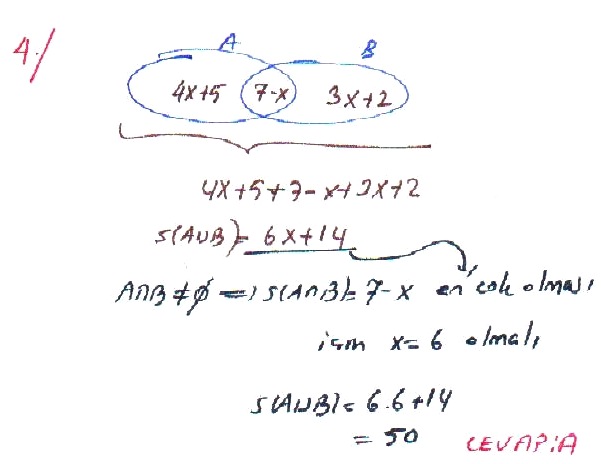 4/
A B
4x+5 7-x 3x+2
4x+5+7-x+3x+2
S(A∪B)= 6x+14
A∩B≠∅ ⇒ S(A∩B)= 7-x en çok olması
için x=6 olmalı
S(A∪B)= 6.6+14
= 50 CEVAP:A